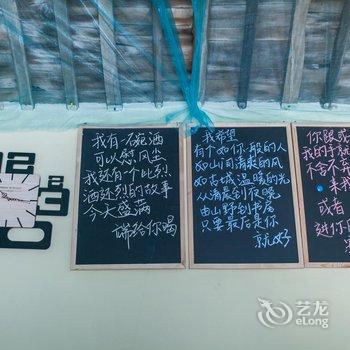 我有一碗酒
可以慰风尘
我还有个比烈
酒还烈的故事
今天盛满
端给你喝
我希望
有个如你一般的人
如山间清爽的风
如古城温暖的光
从清晨到夜晚
由山野到书房
只要最后是你
就好
你跟或
我的手就
不舍不弃
来我
或者
进你
艺龙
eLong